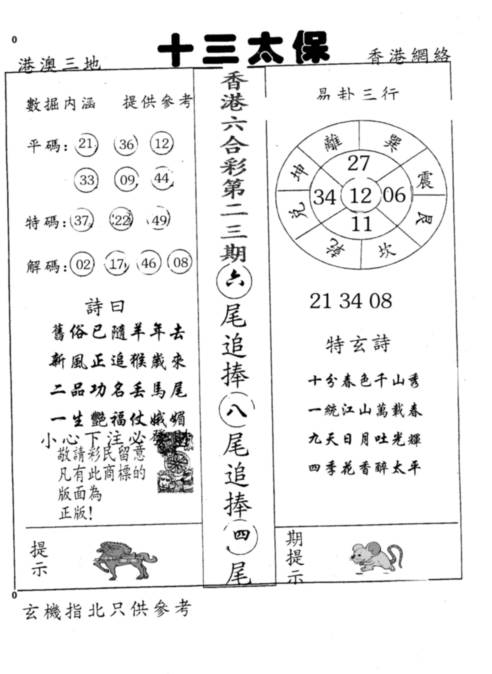 0
港澳三地
十三太保
香港網絡
數掘内涵 提供參考
平碼: 21 36 12
33 09 44
特碼: 37 22 49
解碼: 02 17 46 08
詩曰
舊俗已隨羊年去
新風正追猴歲來
二品功名丢馬尾
一生艷福仗娥媚
小心下注必發財
敬請彩民留意
凡有此商標的
版面為
正版!
提示
香港六合彩第二三期六尾追捧八尾追捧四尾
易卦三行
離 巽
坤 震
兌 艮
乾 坎
27
34 12 06
11
21 34 08
特玄詩
十分春色千山秀
一統江山萬載春
九天日月吐光輝
四季花香醉太平
期提示
0
玄機指北只供參考